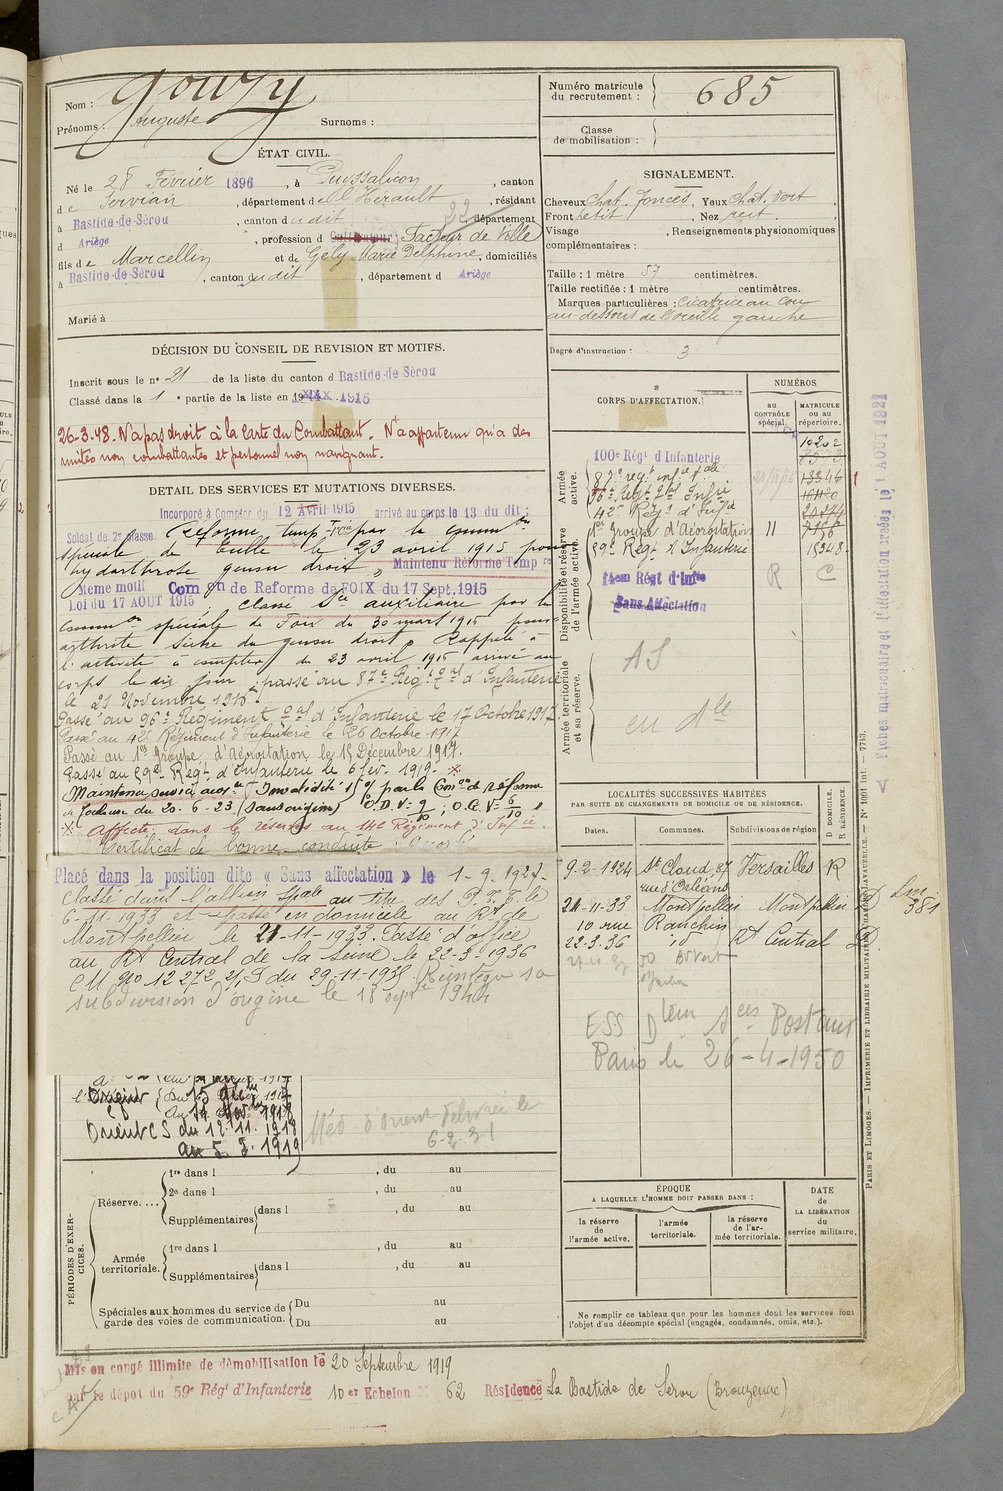 Nom : Gouzy
Prénoms : Auguste Surnoms :
Numéro matricule du recrutement : 685
Classe de mobilisation :
ÉTAT CIVIL.
Né le 28 Février 1896, à Puissalicon, canton
de Servian, département de l'Hérault, résidant
à Bastide-de-Sérou, canton du dit, département
d Ariège, profession d Cultivateur Facteur de Ville
fils de Marcellin et de Gély Marie Delphine, domiciliés
à Bastide-de-Sérou, canton du dit, département d Ariège
Marié à
SIGNALEMENT.
Cheveux chat. foncés, Yeux chat. vert
Front petit, Nez rect.
Visage , Renseignements physionomiques
complémentaires :
Taille : 1 mètre 57 centimètres.
Taille rectifiée : 1 mètre centimètres.
Marques particulières : cicatrice au cou
au-dessous de l'oreille gauche
Degré d'instruction : 3
DÉCISION DU CONSEIL DE REVISION ET MOTIFS.
Inscrit sous le n° 21 de la liste du canton d Bastide-de-Sérou
Classé dans la 1e partie de la liste en 1915
26-3-48. N'a pas droit à la Carte du Combattant. N'a appartenu qu'a des
unités non combattantes et personnel non navignant.
DETAIL DES SERVICES ET MUTATIONS DIVERSES.
Incorporé à Compter du 12 Avril 1915 arrivé au corps le 13 du dit ;
Soldat de 2e classe Réforme temp par la comm on
spéciale de Tulle le 23 avril 1915 pour
hydarthrose genou droit, Maintenu Réforme Temp re
Meme motif Com on de Reforme de FOIX du 17 Sept. 1915
Loi du 17 AOUT 1915. Classé Sce auxiliaire par la
comm on spéciale de Foix du 30 mars 1916 pour
arthrite sèche du genou droit, Rappelé à
l'activité à compter du 23 avril 1916 arrivé au
corps le dix jour, passé au 87e Régt d'Infanterie
le 21 Novembre 1916.
Passé au 96e Régiment d'Infanterie le 17 Octobre 1917.
Passé au 42e Régiment d'Infanterie le 26 Octobre 1917
Passé au 1er Groupe d'Aérostation le 15 Décembre 1917.
Passé au 59e Régt d'Infanterie le 6 fév. 1919. X
Maintenu service aux re (Invalidité 15 % par la Con on de réforme
de Toulouse du 20-6-23 (sans origine) O.D.V = 9/10 ; O.G.V = 6/10
X Affecté dans la réserve au 14e Régiment d'Inf ie.
Certificat de bonne conduite
Placé dans la position dite « Sans affectation » le 1-9-1927.
Classé dans l'affect on spale au titre des P.T.T. le
6-11-1933 et passé en domicile au Rt de
Montpellier le 21-11-1933. Passé d'office
au Rt Central de la Seine le 22-3-1936
CM N° 12272 du 29-11-1935 Réintègre sa
subdivision d'origine le 18 sept 1944
Orient CS du 12.11.1918
au 5.2.1919
Méd. d'Orient délivrée le
6-2-31
CORPS D'AFFECTATION.
NUMÉROS
au contrôle spécial.
MATRICULE ou au répertoire.
Armée active.
100e Régt d'Infanterie
87e regt inf ie
96e Régt d'Inf ie
42e Régt d'Inf ie
1er Groupe d'Aérostation 11 7156
59e Régt d'Infanterie 15348
Disponibilité et réserve de l'armée active.
14em Régt d'Inf ie R C
Sans Affectation
Armée territoriale et sa réserve.
AS
Fiches matriculaire et d'affectation créées le 1 AOUT 1921
LOCALITÉS SUCCESSIVES HABITÉES
PAR SUITE DE CHANGEMENTS DE DOMICILE OU DE RÉSIDENCE.
Dates. Communes. Subdivisions de région D DOMICILE. R RÉSIDENCE.
9-2-1924 St Cloud 27 Versailles R
rue d'Orléans
21-11-33 Montpellier Montpellier D
10 rue Ranchin
22-3-36 id Rt Central D
381
ESS D tem Sces Postaux
Paris le 26-4-1950
ÉPOQUE
A LAQUELLE L'HOMME DOIT PASSER DANS :
la réserve de l'armée active.
l'armée territoriale.
la réserve de l'armée territoriale.
DATE de LA LIBÉRATION du service militaire.
Ne remplir ce tableau que pour les hommes dont les services font
l'objet d'un décompte spécial (engagés, condamnés, omis, etc.).
PÉRIODES D'EXERCICES.
Réserve.... 1re dans l , du au
2e dans l , du au
Supplémentaires dans l , du au
Armée territoriale. 1re dans l , du au
Supplémentaires dans l , du au
Spéciales aux hommes du service de garde des voies de communication. Du au
Du au
Mis en congé illimité de démobilisation le 20 Septembre 1919
par le dépot du 59e Régt d'Infanterie 10er Echelon N° 62 Résidence La Bastide de Sérou (Brouzenac)
PARIS ET LIMOGES. — IMPRIMERIE ET LIBRAIRIE MILITAIRE CHARLES-LAVAUZELLE. — N° 1001 int. — 7743.